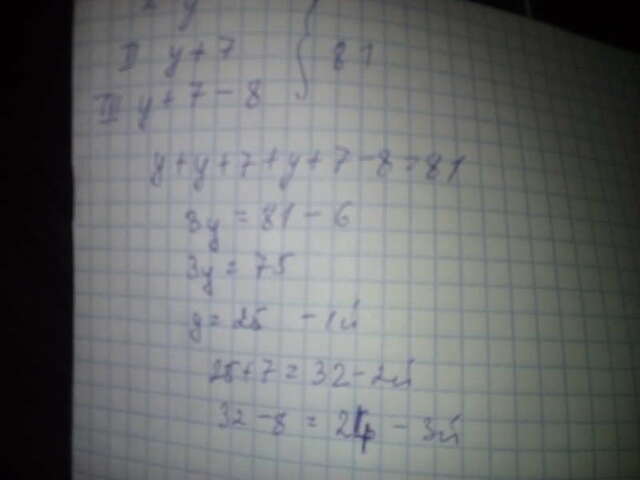 I y
II y + 7 } 81
III y + 7 - 8
y + y + 7 + y + 7 - 8 = 81
3y = 81 - 6
3y = 75
y = 25 - 1й
25 + 7 = 32 - 2й
32 - 8 = 24 - 3й